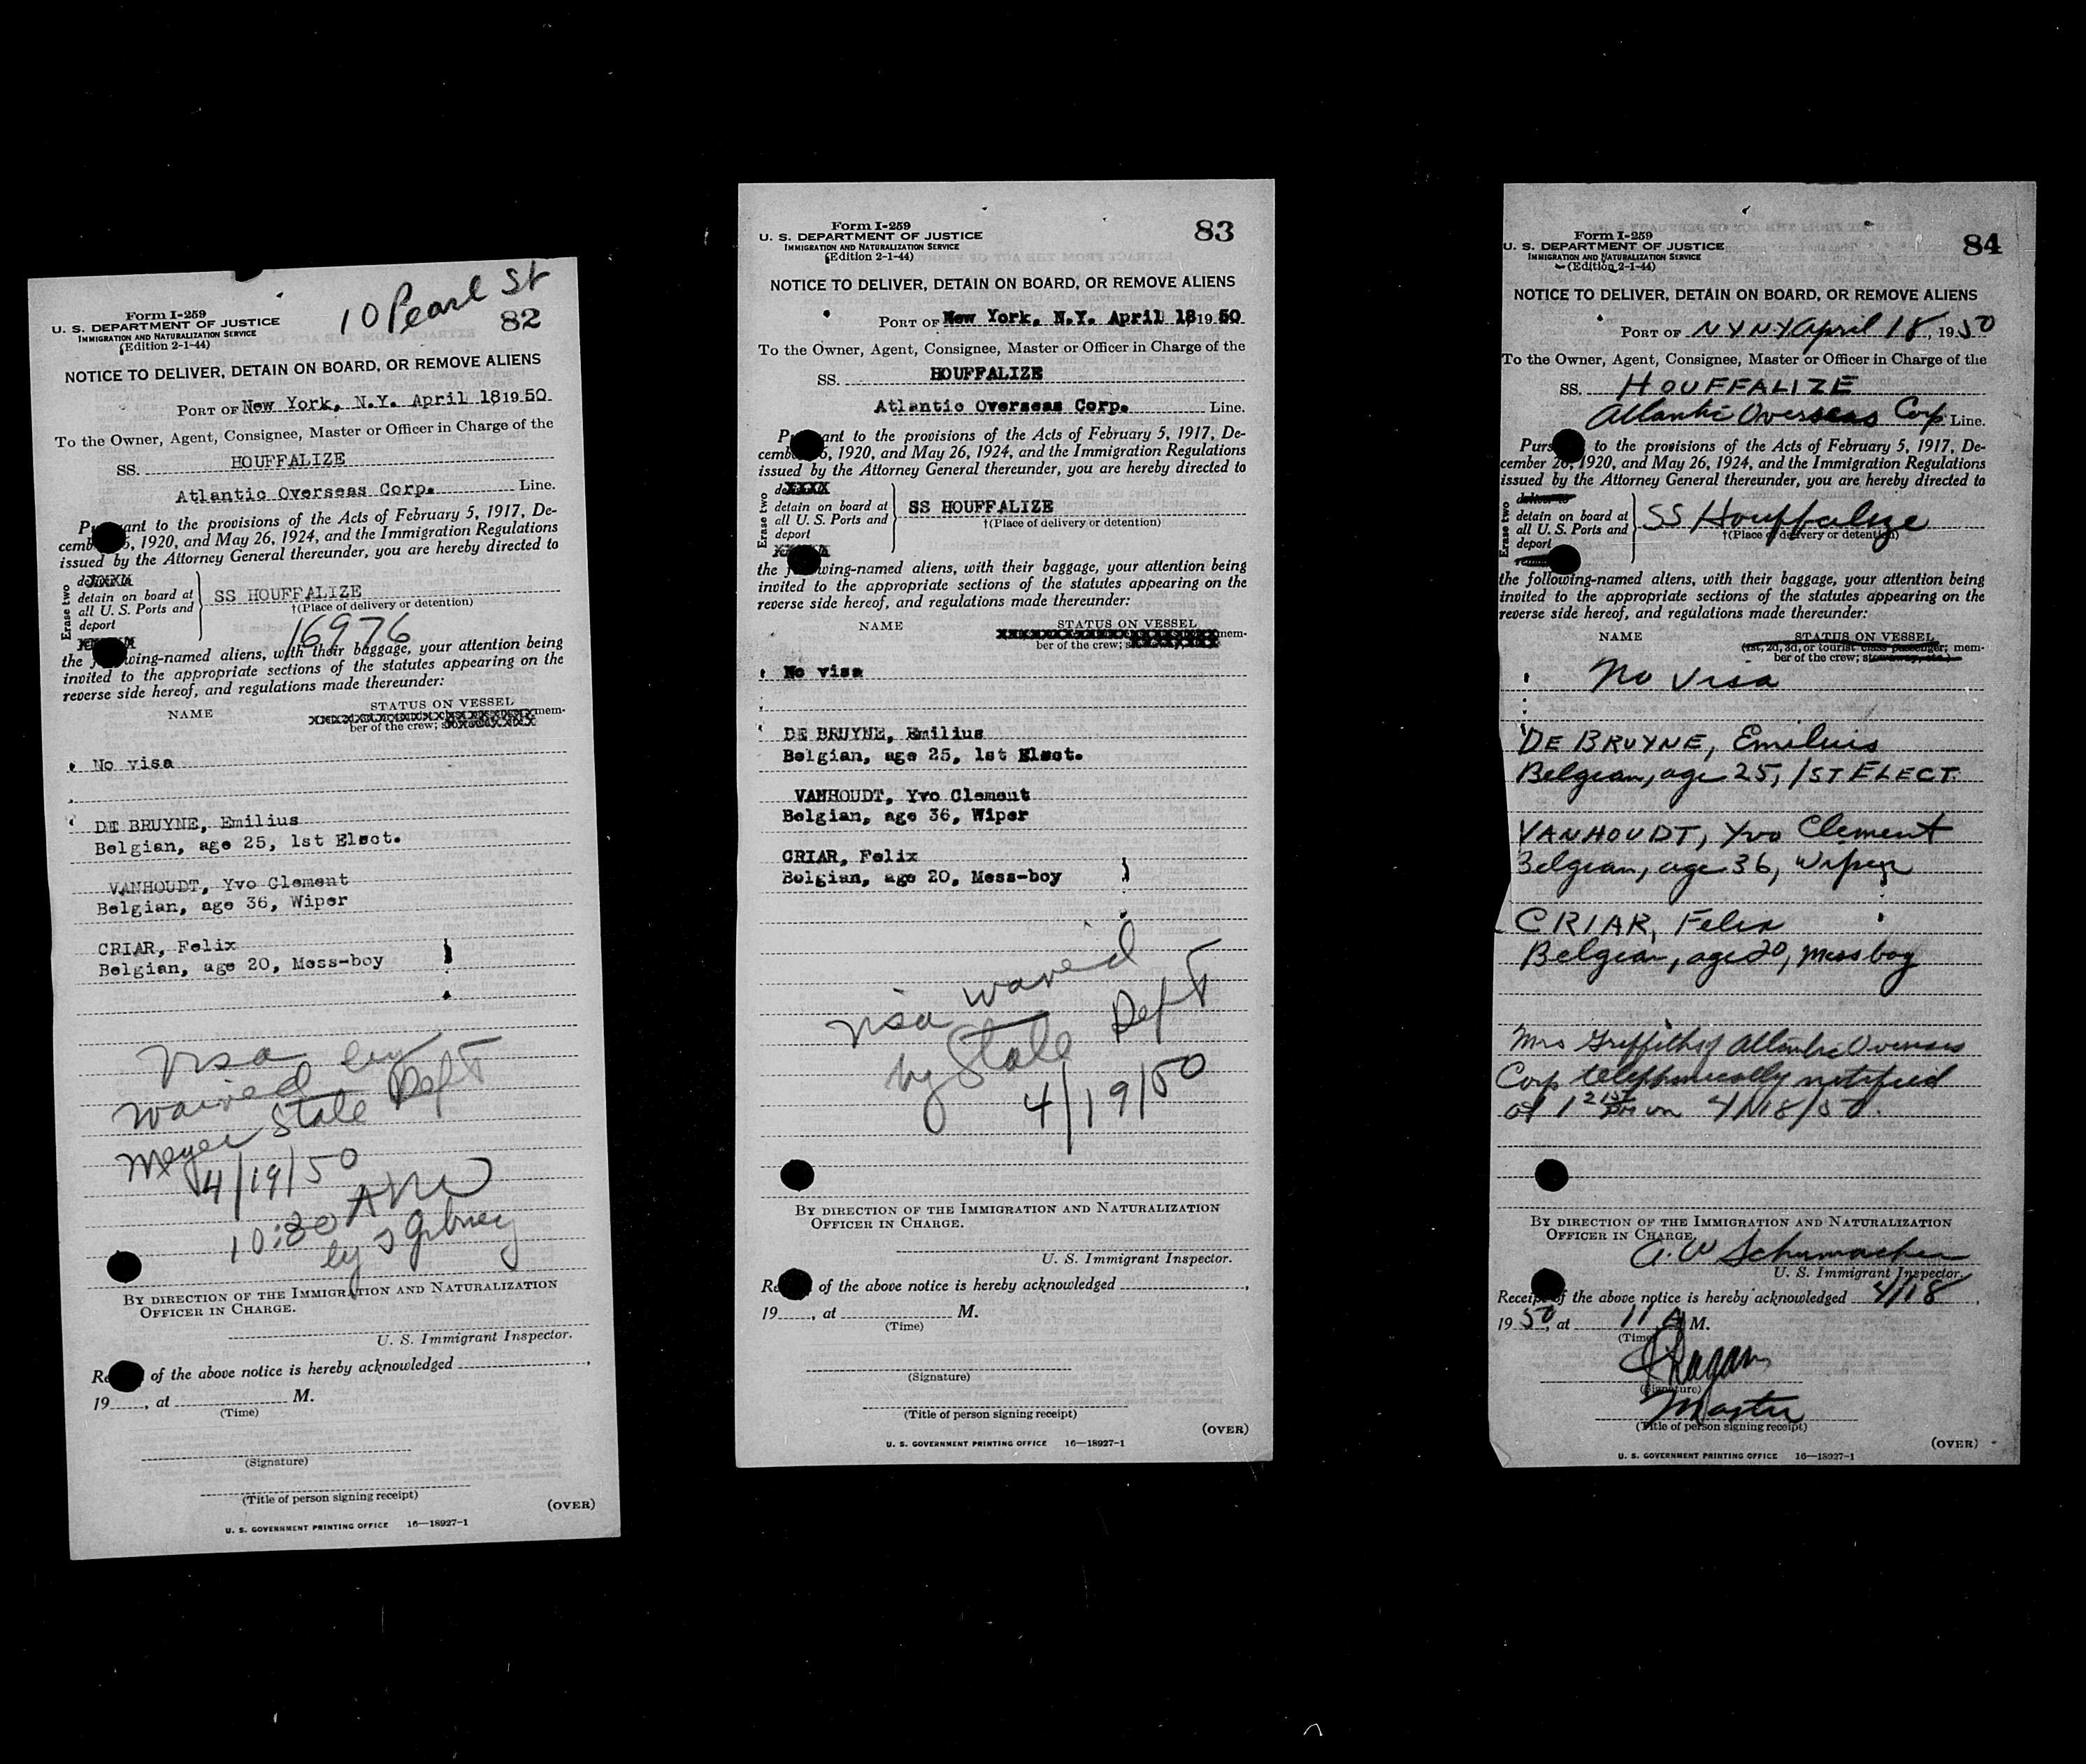 10 Pearl St
Form I-259
82
U. S. DEPARTMENT OF JUSTICE
IMMIGRATION AND NATURALIZATION SERVICE
(Edition 2-1-44)
NOTICE TO DELIVER, DETAIN ON BOARD, OR REMOVE ALIENS
PORT OF New York, N.Y. April 18 19 50
To the Owner, Agent, Consignee, Master or Officer in Charge of the
SS. HOUFFALIZE
Atlantic Overseas Corp. Line.
P ant to the provisions of the Acts of February 5, 1917, De-
cemb 6, 1920, and May 26, 1924, and the Immigration Regulations
issued by the Attorney General thereunder, you are hereby directed to
Erase two
detain on board at
all U. S. Ports and
deport
SS HOUFFALIZE
†(Place of delivery or detention)
16976
the f wing-named aliens, with their baggage, your attention being
invited to the appropriate sections of the statutes appearing on the
reverse side hereof, and regulations made thereunder:
NAME STATUS ON VESSEL
mem-
ber of the crew;
No visa
DE BRUYNE, Emilius
Belgian, age 25, 1st Elect.
VANHOUDT, Yvo Clement
Belgian, age 36, Wiper
CRIAR, Felix
Belgian, age 20, Mess-boy
Visa by
waived Dept
Meyer State
4/19/50
10:30 AM
by
BY DIRECTION OF THE IMMIGRATION AND NATURALIZATION
OFFICER IN CHARGE.
U. S. Immigrant Inspector.
Re of the above notice is hereby acknowledged ,
19 , at M.
(Time)
(Signature)
(Title of person signing receipt)
(OVER)
U. S. GOVERNMENT PRINTING OFFICE 16—18927-1
Form I-259
83
U. S. DEPARTMENT OF JUSTICE
IMMIGRATION AND NATURALIZATION SERVICE
(Edition 2-1-44)
NOTICE TO DELIVER, DETAIN ON BOARD, OR REMOVE ALIENS
PORT OF New York, N.Y. April 18 19 50
To the Owner, Agent, Consignee, Master or Officer in Charge of the
SS. HOUFFALIZE
Atlantic Overseas Corp. Line.
P ant to the provisions of the Acts of February 5, 1917, De-
cemb 6, 1920, and May 26, 1924, and the Immigration Regulations
issued by the Attorney General thereunder, you are hereby directed to
Erase two
detain on board at
all U. S. Ports and
deport
SS HOUFFALIZE
†(Place of delivery or detention)
the f wing-named aliens, with their baggage, your attention being
invited to the appropriate sections of the statutes appearing on the
reverse side hereof, and regulations made thereunder:
NAME STATUS ON VESSEL
mem-
ber of the crew;
No visa
DE BRUYNE, Emilius
Belgian, age 25, 1st Elect.
VANHOUDT, Yvo Clement
Belgian, age 36, Wiper
CRIAR, Felix
Belgian, age 20, Mess-boy
visa waived
by State Dept
4/19/50
BY DIRECTION OF THE IMMIGRATION AND NATURALIZATION
OFFICER IN CHARGE.
U. S. Immigrant Inspector.
Re of the above notice is hereby acknowledged ,
19 , at M.
(Time)
(Signature)
(Title of person signing receipt)
(OVER)
U. S. GOVERNMENT PRINTING OFFICE 16—18927-1
Form I-259
84
U. S. DEPARTMENT OF JUSTICE
IMMIGRATION AND NATURALIZATION SERVICE
(Edition 2-1-44)
NOTICE TO DELIVER, DETAIN ON BOARD, OR REMOVE ALIENS
PORT OF N Y N.Y April 18, 1950
To the Owner, Agent, Consignee, Master or Officer in Charge of the
SS. HOUFFALIZE
Atlantic Overseas Corp Line.
Purs to the provisions of the Acts of February 5, 1917, De-
cember 26, 1920, and May 26, 1924, and the Immigration Regulations
issued by the Attorney General thereunder, you are hereby directed to
Erase two
deliver to
detain on board at
all U. S. Ports and
deport
SS Houffalize
†(Place of delivery or detention)
the following-named aliens, with their baggage, your attention being
invited to the appropriate sections of the statutes appearing on the
reverse side hereof, and regulations made thereunder:
NAME STATUS ON VESSEL
(1st, 2d, 3d, or tourist class passenger; mem-
ber of the crew; stowaway, etc.)
No Visa
DE BRUYNE, Emilius
Belgian, age 25, 1ST ELECT.
VANHOUDT, Yvo Clement
Belgian, age 36, Wiper
CRIAR, Felix
Belgian, age 20, Mess boy
Mrs Griffith of Atlantic Overseas
Corp telephonically notified
at 1 pm on 4/18/50.
BY DIRECTION OF THE IMMIGRATION AND NATURALIZATION
OFFICER IN CHARGE.
A. W Schumacher
U. S. Immigrant Inspector.
Receipt of the above notice is hereby acknowledged 4/18,
1950, at 11 A M.
(Time)
(Signature)
Master
(Title of person signing receipt)
(OVER)
U. S. GOVERNMENT PRINTING OFFICE 16—18927-1